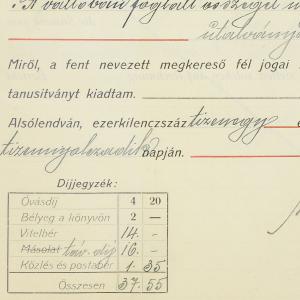 A vallóban foglalt összeget
utalványo
Miről, a fent nevezett megkereső fél jogai
tanusítványt kiadtam.
Alsólendván, ezerkilencszáz tizenegy
tizennyolcadik napján.
Díjjegyzék:
Óvásdíj 4 20
Bélyeg a könyvön 2 —
Vitelbér 14 -
Másolat táv. díj 16 -
Közlés és postabér 1 35
Összesen 37 55